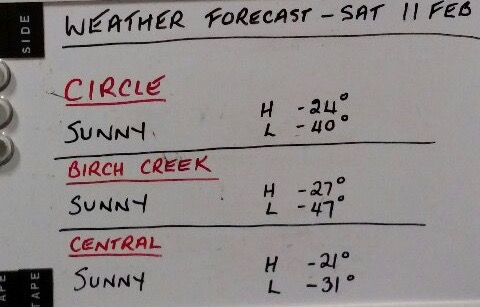 SIDE
WEATHER FORECAST - SAT 11 FEB
CIRCLE
SUNNY H -24°
L -40°
BIRCH CREEK
SUNNY H -27°
L -47°
CENTRAL
SUNNY H -21°
L -31°
APE
TAPE